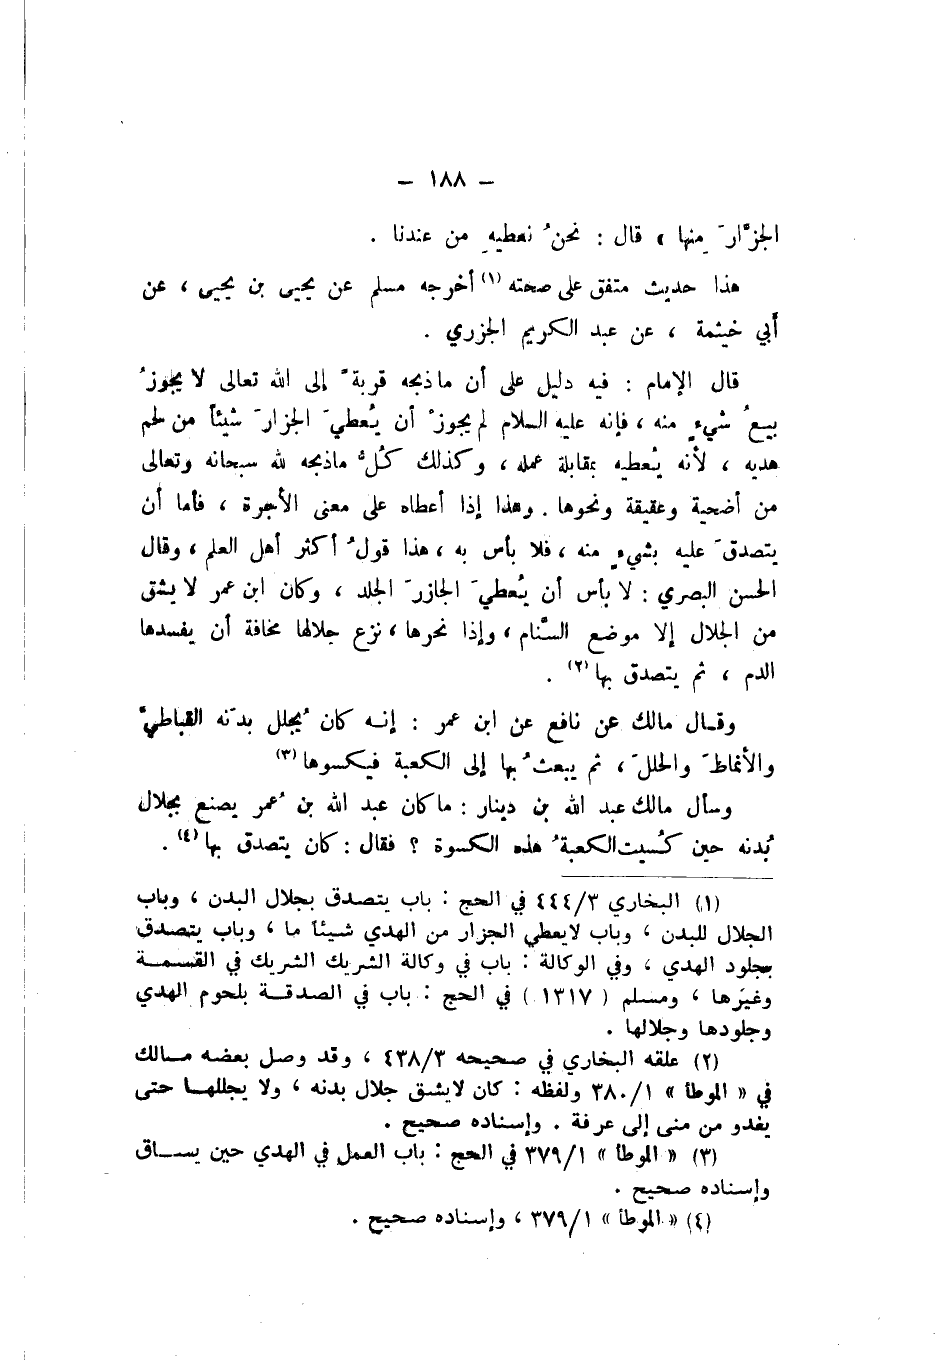 — ١٨٨ —
الجزَّارَ مِنها » قال : نحنُ نعطيهِ من عندنا .
هذا حديث متفق على صحته (١) أخرجه مسلم عن يحيى بن يحيى ، عن
أبي خيثمة ، عن عبد الكريم الجزري .
قال الإمام : فيه دليل على أن ماذبحه قربةً إلى الله تعالى لا يجوزُ
بيعُ شيءٍ منه ، فإنه عليه السلام لم يجوزْ أن يُعطيَ الجزارَ شيئاً من لحم
هديه ، لأنه يُعطيه بمقابلة عمله ، وكذلك كلُّ ماذبحه لله سبحانه وتعالى
من أضحية وعقيقة ونحوها . وهذا إذا أعطاه على معنى الأجرة ، فأما أن
يتصدقَ عليه بشيءٍ منه ، فلا بأس به ، هذا قولُ أكثر أهل العلم ، وقال
الحسن البصري : لا بأس أن يُعطيَ الجازرَ الجلد ، وكان ابن عمر لا يشق
من الجلال إلا موضع السَّنام ، وإذا نحرها ، نزع جلالها مخافة أن يفسدها
الدم ، ثم يتصدق بها (٢) .
وقال مالك عن نافع عن ابن عمر : إنه كان يُجلل بدْنه القباطيَّ
والأنماطَ والحللَ ، ثم يبعثُ بها إلى الكعبة فيكسوها (٣)
وسأل مالك عبد الله بن دينار : ما كان عبد الله بن عُمر يصنع بجلال
بُدنه حين كُسيت الكعبةُ هذه الكسوة ؟ فقال : كان يتصدق بها (٤) .
(١) البخاري ٤٤٤/٣ في الحج : باب يتصدق بجلال البدن ، وباب
الجلال للبدن ، وباب لايعطي الجزار من الهدي شيئاً ما ، وباب يتصدق
بجلود الهدي ، وفي الوكالة : باب في وكالة الشريك الشريك في القسمة
وغيَرها ، ومسلم ( ١٣١٧ ) في الحج : باب في الصدقة بلحوم الهدي
وجلودها وجلالها .
(٢) علقه البخاري في صحيحه ٤٣٨/٣ ، وقد وصل بعضه مالك
في « الموطأ » ٣٨٠/١ ولفظه : كان لايشق جلال بدنه ، ولا يجللها حتى
يغدو من منى إلى عرفة . وإسناده صحيح .
(٣) « الموطأ » ٣٧٩/١ في الحج : باب العمل في الهدي حين يساق
وإسناده صحيح .
(٤) « الموطأ » ٣٧٩/١ ، وإسناده صحيح .